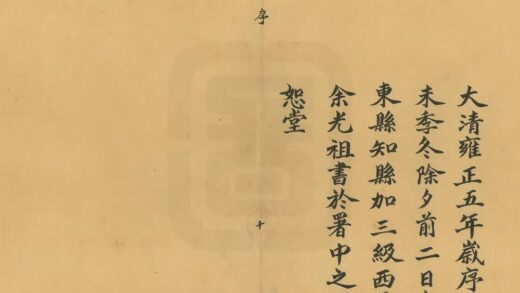 大清雍正五年歲序
未季冬除夕前二日
東縣知縣加三級西
余光祖書於署中之
恕堂
序
十